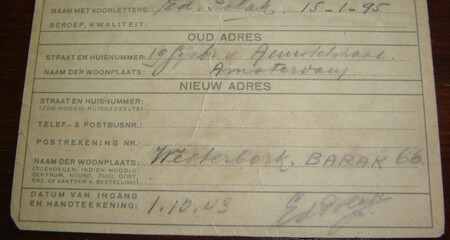 NAAM MET VOORLETTERS: Ed. Polak 15-1-95
BEROEP, KWALITEIT:
OUD ADRES
STRAAT EN HUISNUMMER: 19
NAAM DER WOONPLAATS: Amsterdam
NIEUW ADRES
STRAAT EN HUISNUMMER:
(ZOO NOODIG HUISGEDEELTE)
TELEF.- & POSTBUSNR.:
POSTREKENING NR.:
NAAM DER WOONPLAATS: Westerbork. BARAK 66
(TOEVOEGEN, INDIEN NOODIG:
CENTRUM, NOORD, ZUID, OOST,
ENZ. OF KANTOOR V. BESTELLING)
DATUM VAN INGANG
EN HANDTEEKENING: 1.10.43 Ed Polak